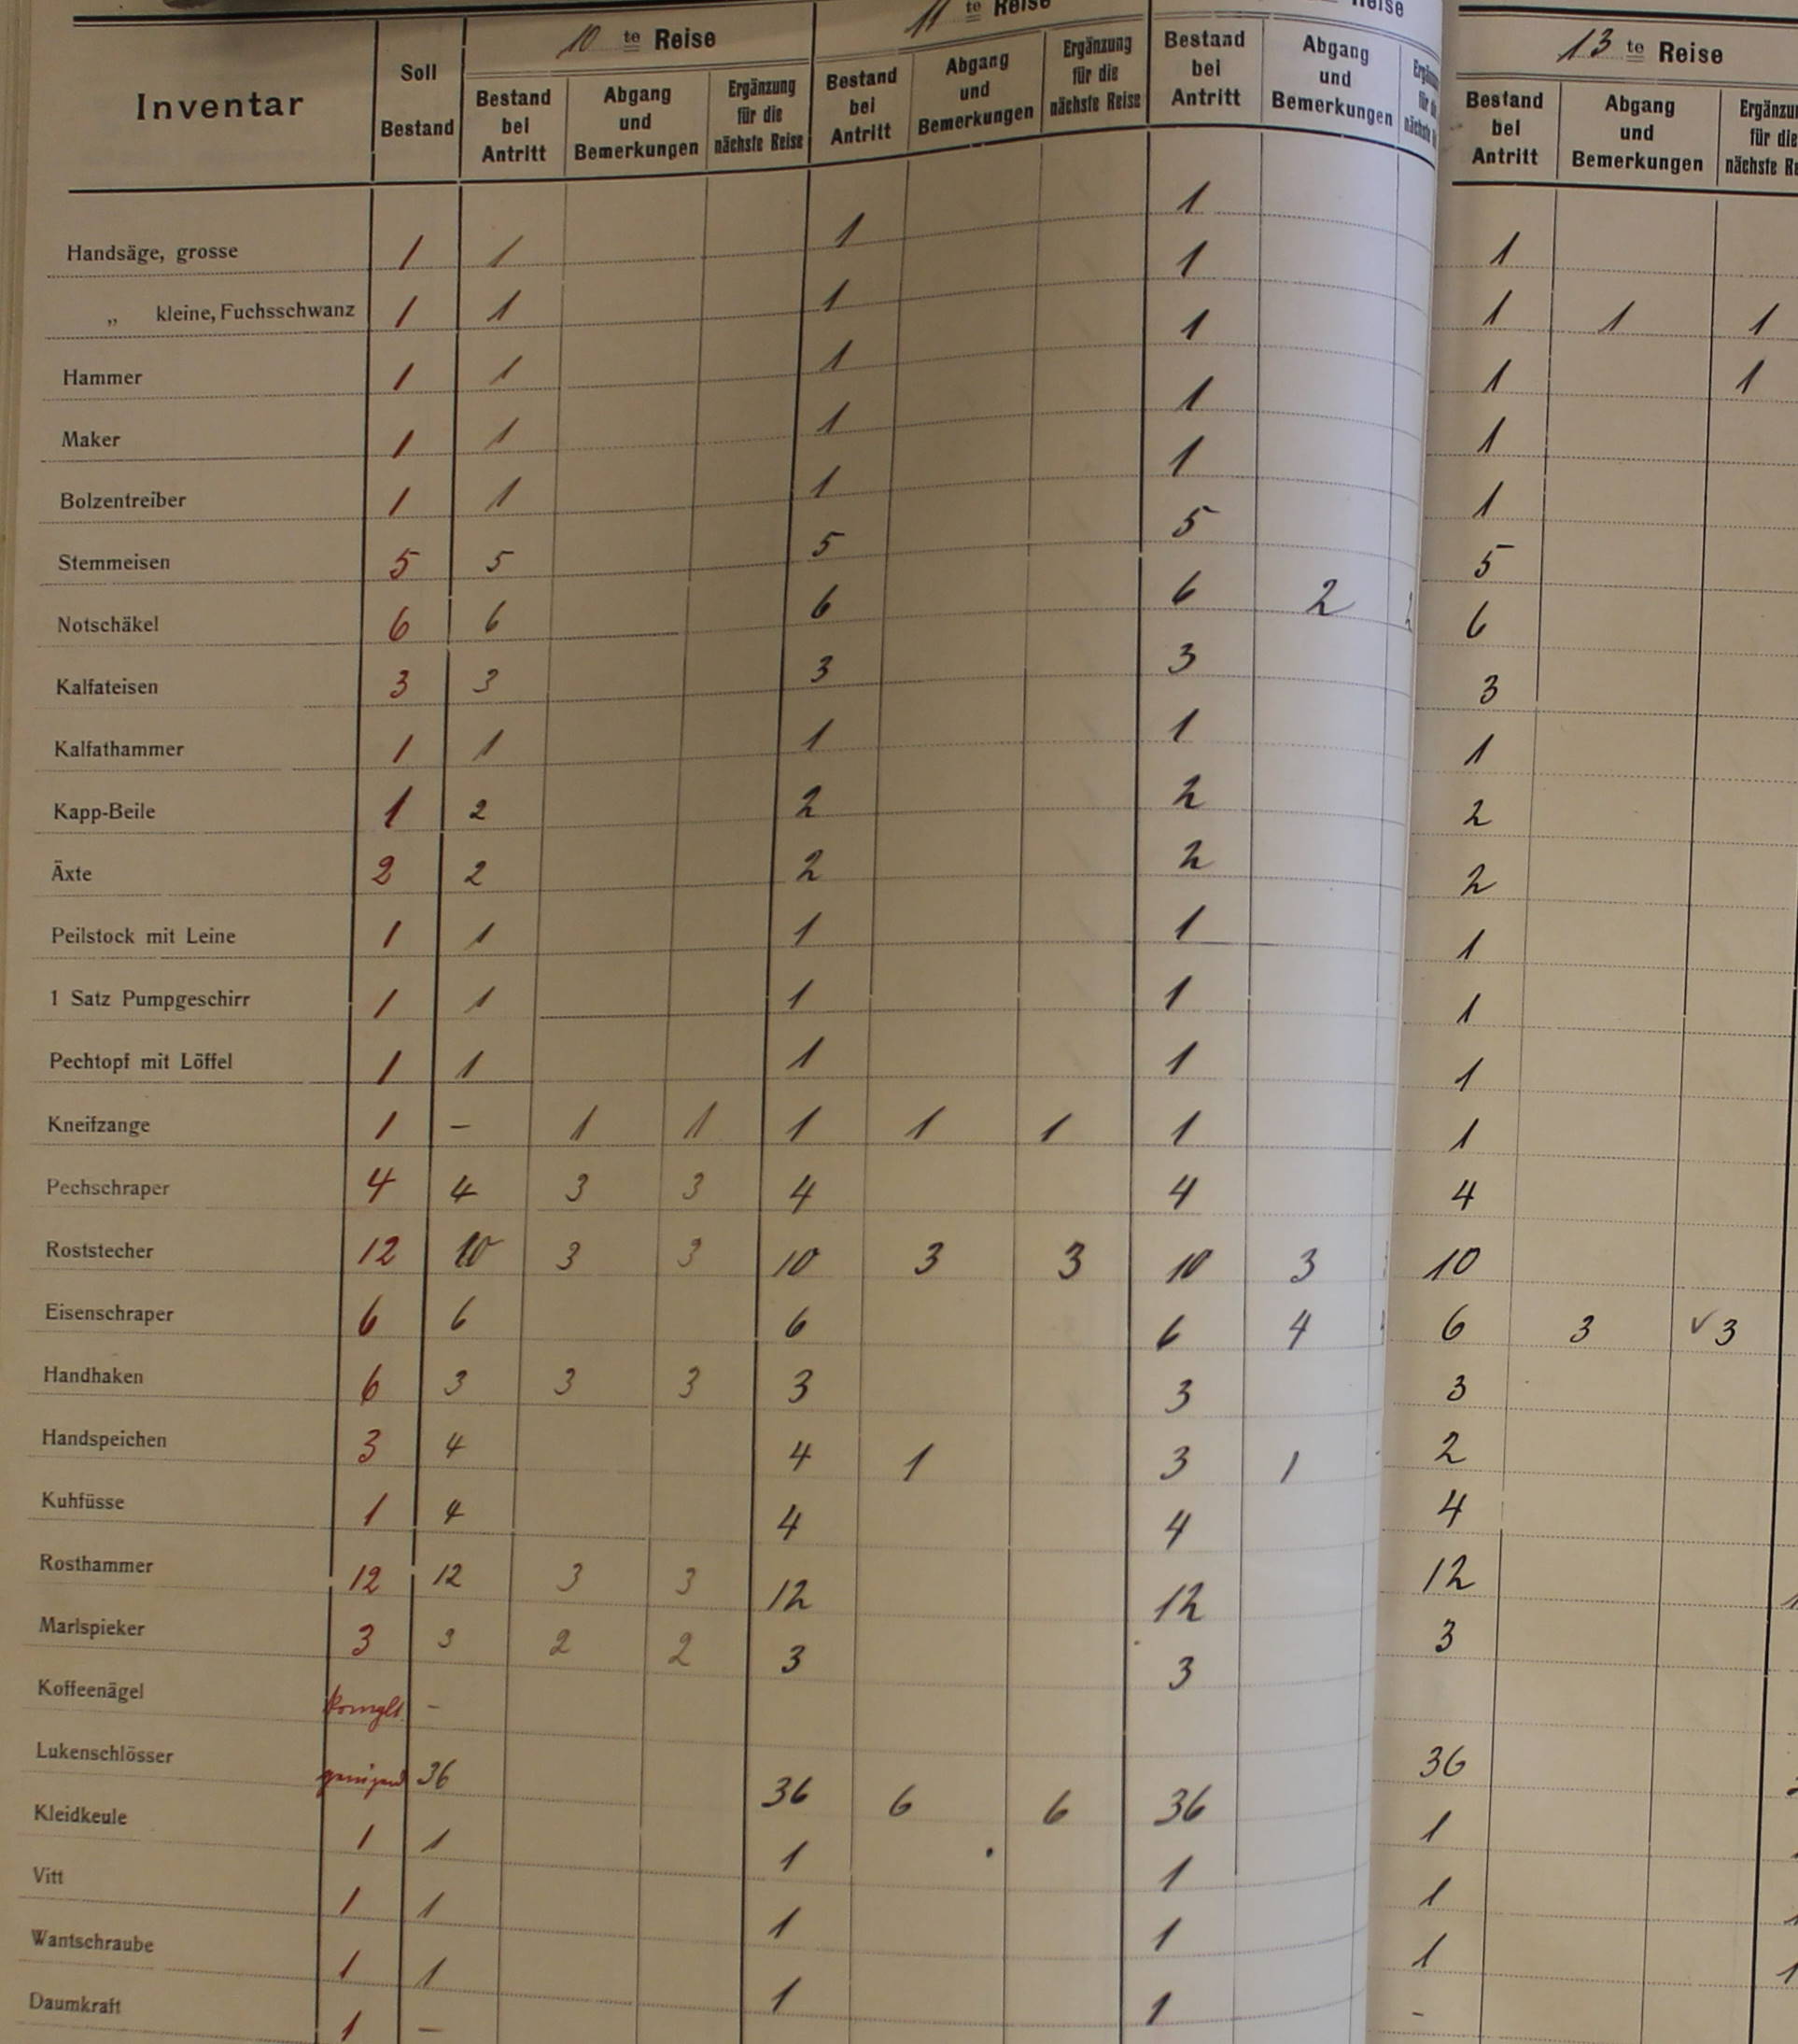 10 te Reise 11 te Reise Reise 13 te Reise
Inventar Soll Bestand Bestand bei Antritt Abgang und Bemerkungen Ergänzung für die nächste Reise Bestand bei Antritt Abgang und Bemerkungen Ergänzung für die nächste Reise Bestand bei Antritt Abgang und Bemerkungen Bestand bei Antritt Abgang und Bemerkungen für die
Handsäge, grosse 1 1 1 1 1
„ kleine, Fuchsschwanz 1 1 1 1 1 1 1
Hammer 1 1 1 1 1 1
Maker 1 1 1 1 1
Bolzentreiber 1 1 1 1 1
Stemmeisen 5 5 5 5 5
Notschäkel 6 6 6 6 2 6
Kalfateisen 3 3 3 3 3
Kalfathammer 1 1 1 1 1
Kapp-Beile 1 2 2 2 2
Äxte 2 2 2 2 2
Peilstock mit Leine 1 1 1 1 1
1 Satz Pumpgeschirr 1 1 1 1 1
Pechtopf mit Löffel 1 1 1 1 1
Kneifzange 1 – 1 1 1 1 1 1 1
Pechschraper 4 4 3 3 4 4 4
Roststecher 12 10 3 3 10 3 3 10 3 10
Eisenschraper 6 6 6 6 4 6 3 ✓ 3
Handhaken 6 3 3 3 3 3 3
Handspeichen 3 4 4 1 3 1 2
Kuhfüsse 1 4 4 4 4
Rosthammer 12 12 3 3 12 12 12
Marlspieker 3 3 2 2 3 3 3
Koffeenägel komplt. –
Lukenschlösser genügend 36 36 6 6 36 36
Kleidkeule 1 1 1 1 1
Vitt 1 1 1 1 1
Wantschraube 1 1 1 1 1
Daumkraft 1 – –